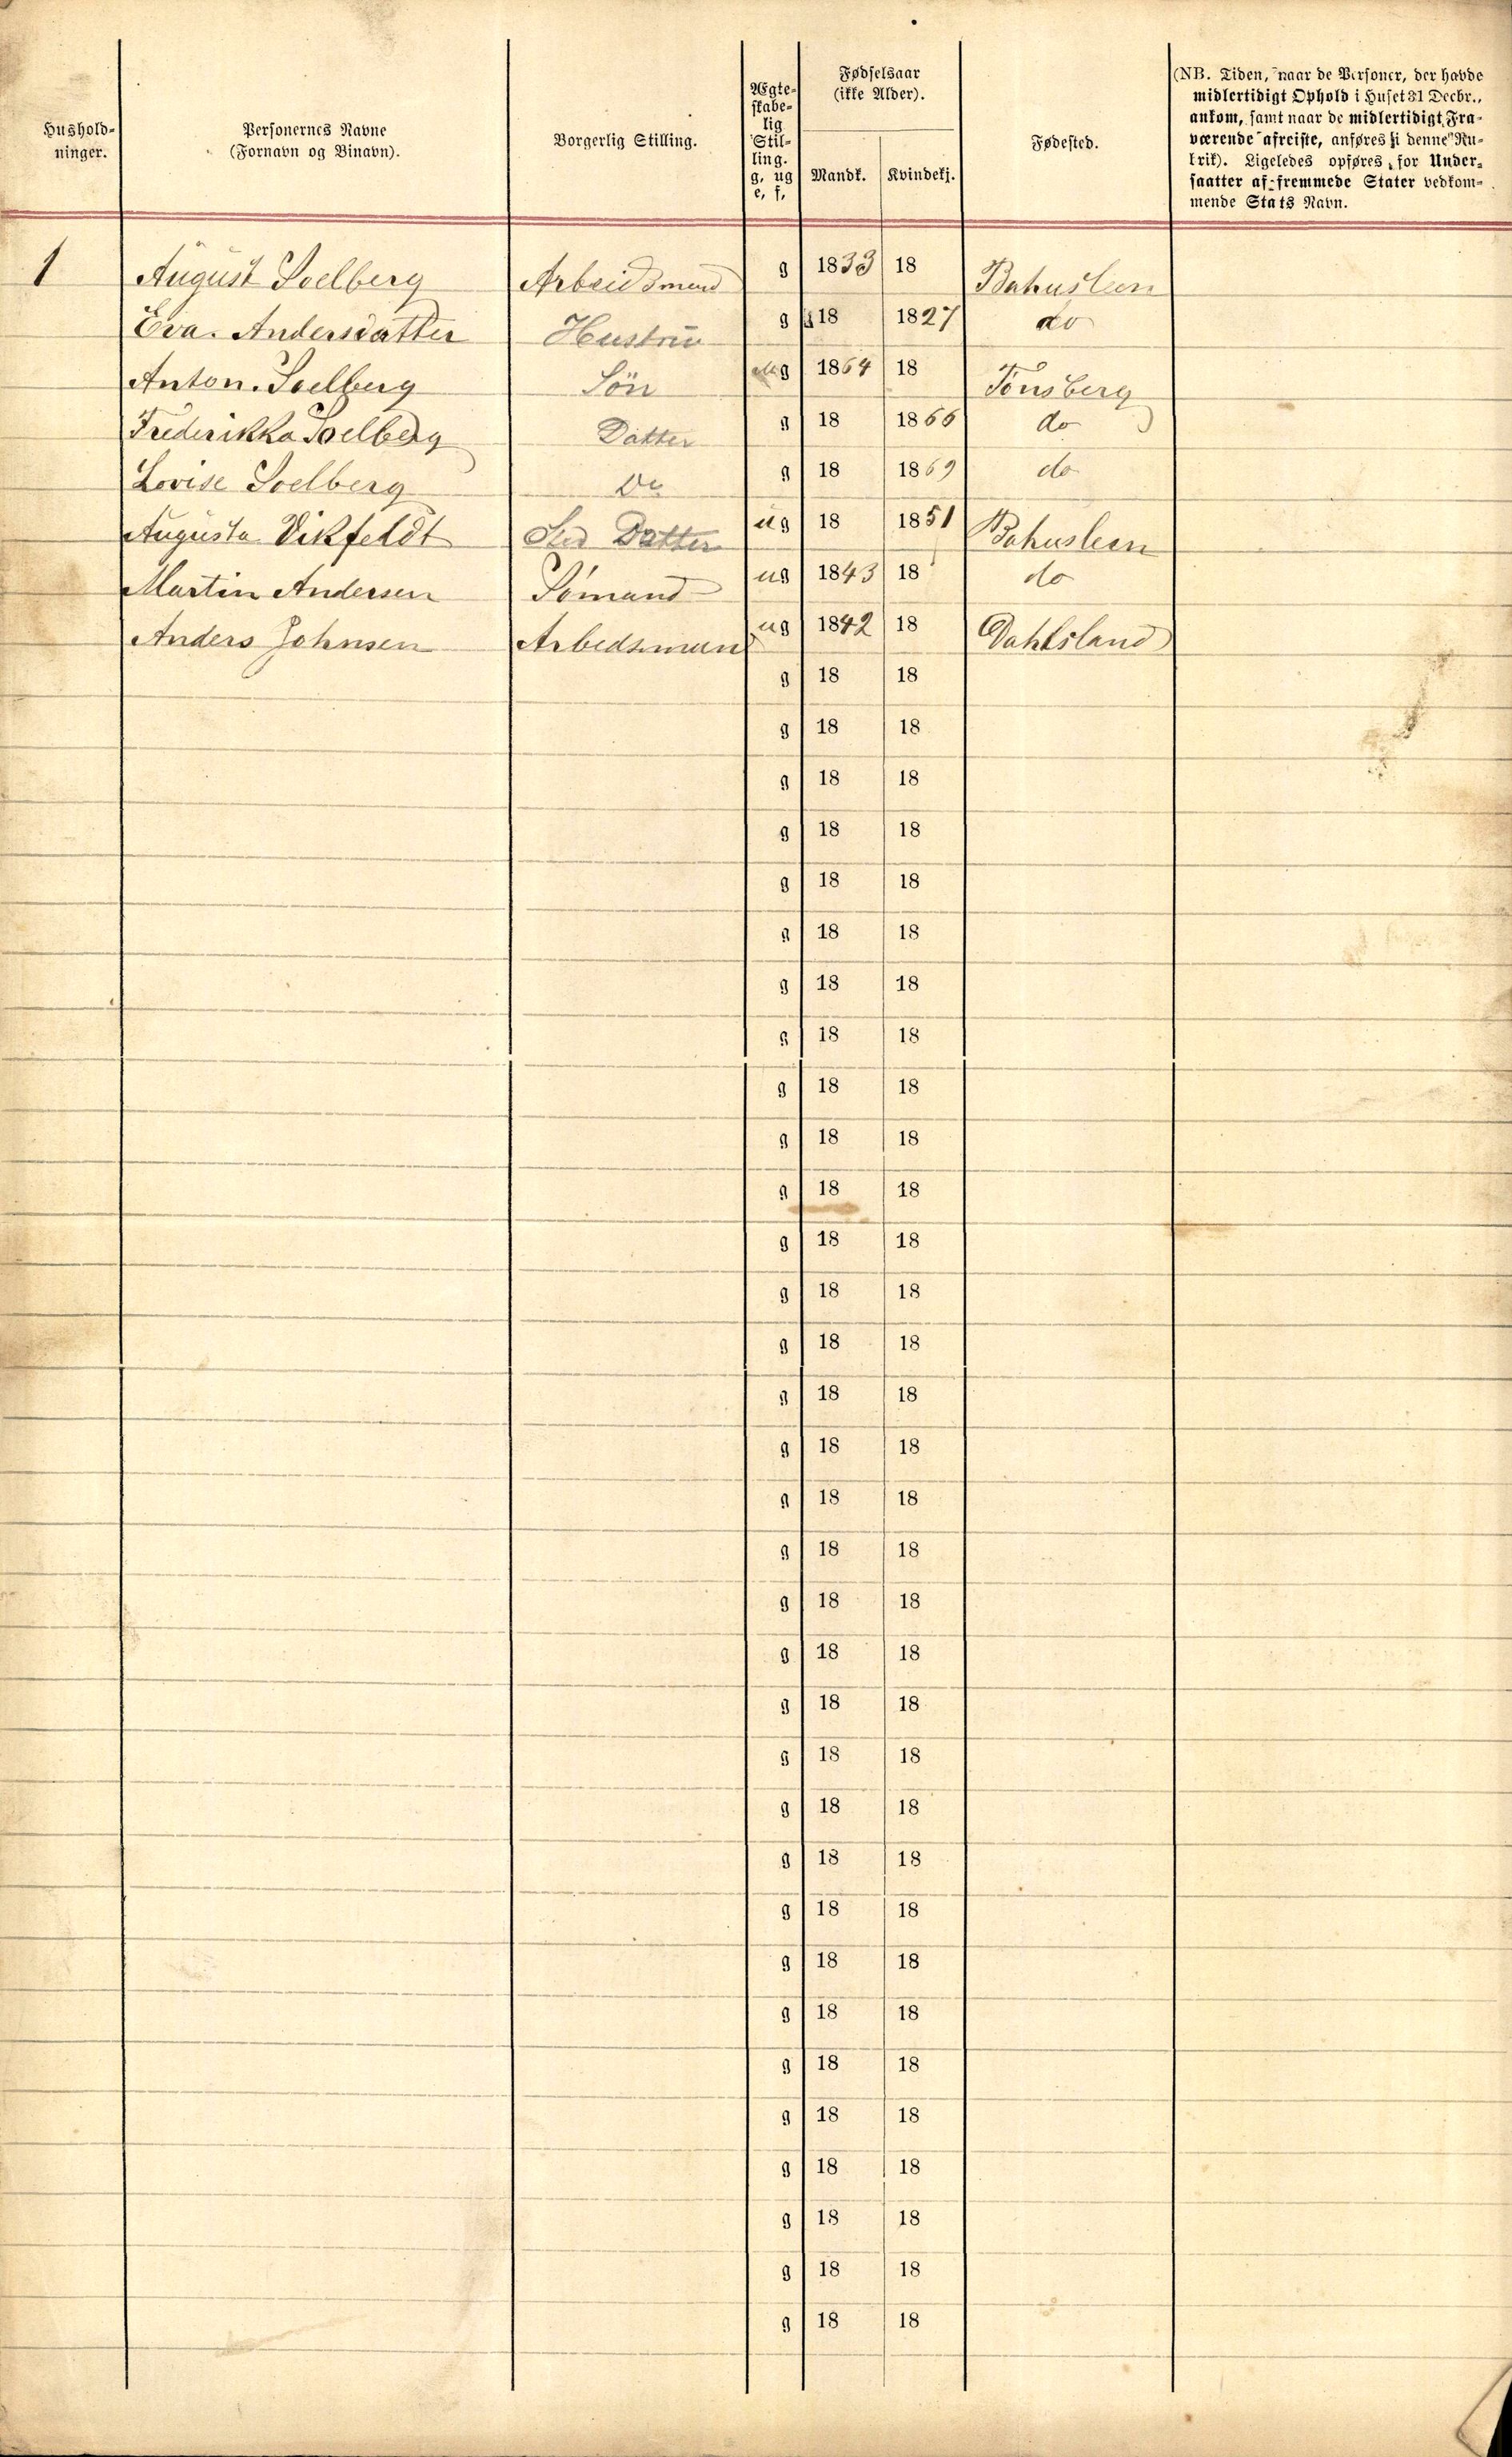 Hushold-
ninger.
Personernes Navne
(Fornavn og Binavn).
Borgerlig Stilling.
Ægte-
skabe-
lig
Stil-
ling.
g, ug
e, f,
Fødselsaar
(ikke Alder).
Mandk.
Kvindekj.
Fødested.
(NB. Tiden, naar de Personer, der havde
midlertidigt Ophold i Huset 31 Decbr.,
ankom, samt naar de midlertidigt Fra-
værende afreiste, anføres i denne Ru-
brik). Ligeledes opføres for Under-
saatter af fremmede Stater vedkom-
mende Stats Navn.
1 August Soelberg Arbeidsmand g 1833 18 Bahusleen
Eva. Andersdatter Hustru g 18 1827 do
Anton. Soelberg Sön ug 1864 18 Tönsberg
Frederikka Soelberg Datter g 18 1866 do
Lovise Soelberg Do g 18 1869 do
Augusta Vikfeldt Sted Datter ug 18 1851 Bahusleen
Martin Andersen Sömand ug 1843 18 do
Anders Johnsen Arbedsmand ug 1842 18 Dahlsland
g 18 18
g 18 18
g 18 18
g 18 18
g 18 18
g 18 18
g 18 18
g 18 18
g 18 18
g 18 18
g 18 18
g 18 18
g 18 18
g 18 18
g 18 18
g 18 18
g 18 18
g 18 18
g 18 18
g 18 18
g 18 18
g 18 18
g 18 18
g 18 18
g 18 18
g 18 18
g 18 18
g 18 18
g 18 18
g 18 18
g 18 18
g 18 18
g 18 18